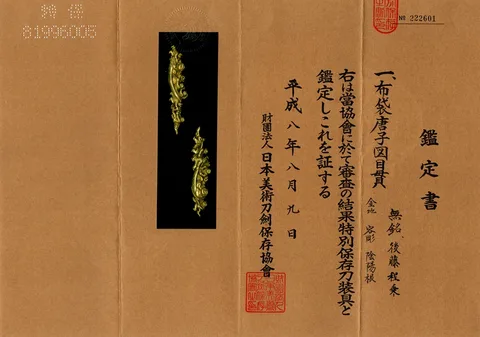 鑑定書
一、布袋唐子図目貫
無銘 後藤程乗
金地 容彫 陰陽根
右は當協會に於て審査の結果特別保存刀装具と
鑑定しこれを証する
平成八年八月九日
財團法人日本美術刀劍保存協會
№ 222601
特保
81996005